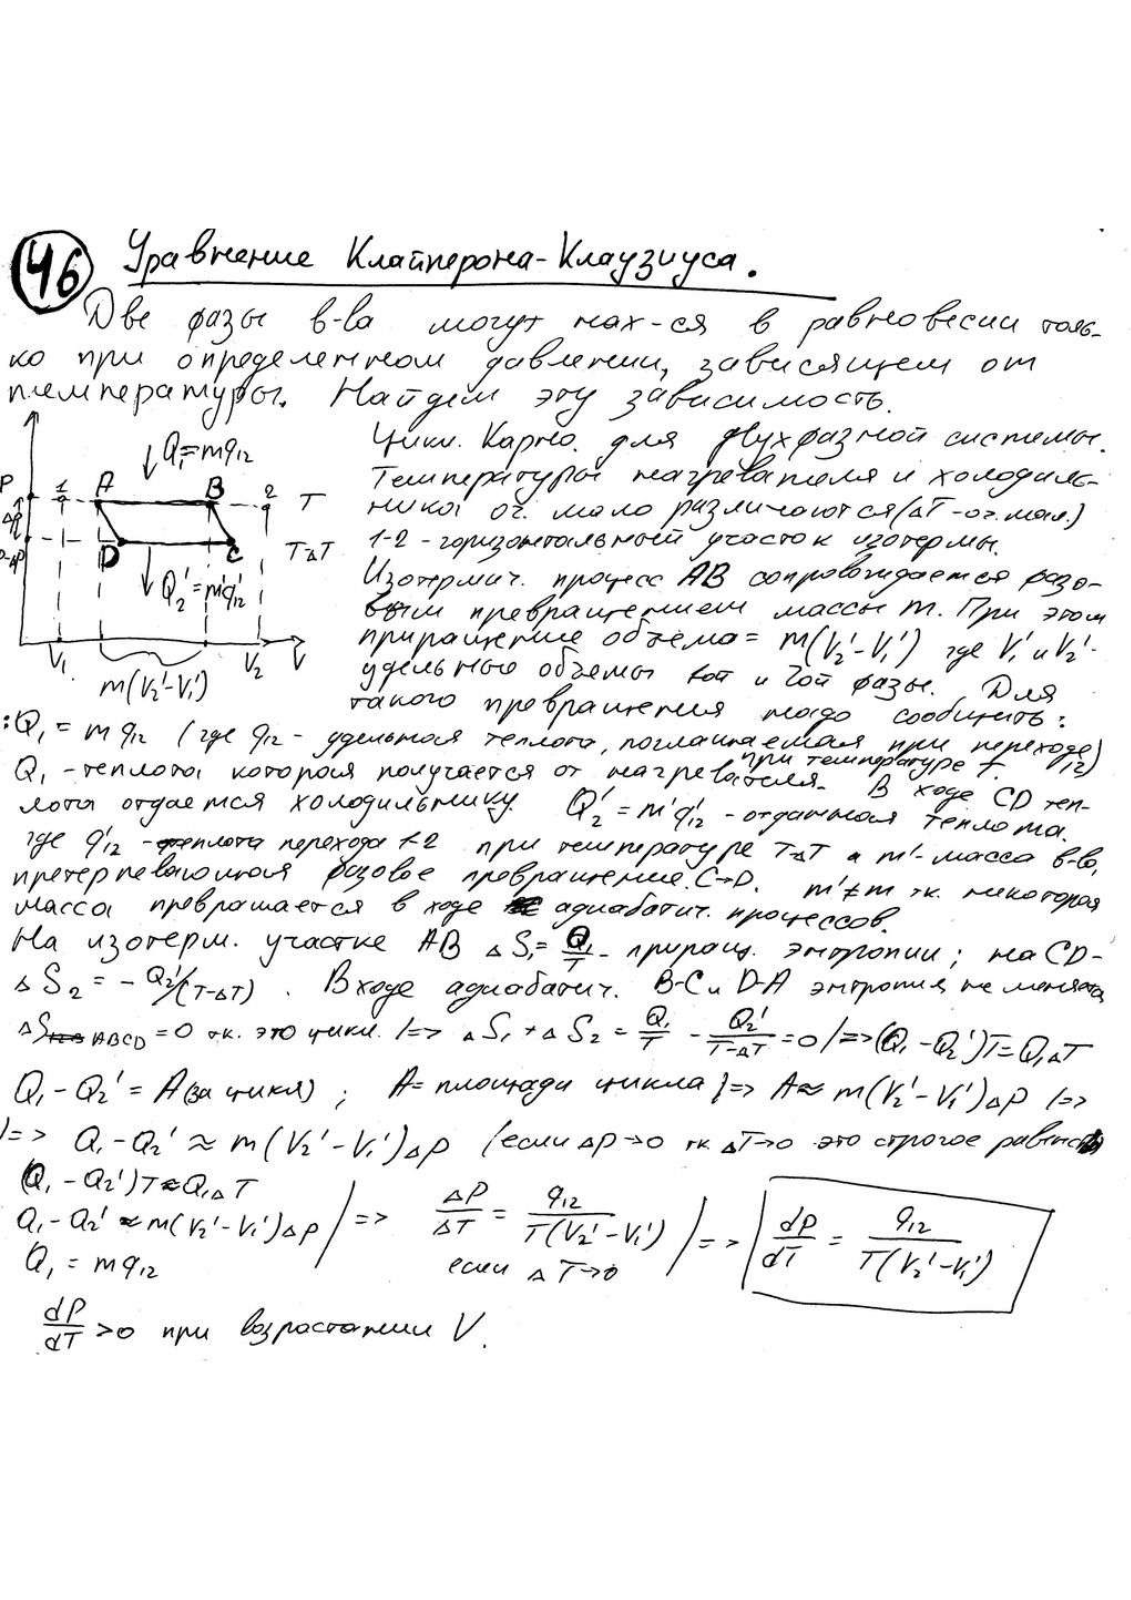 46 Уравнение Клайперона-Клаузиуса.
Две фазы в-ва могут нах-ся в равновесии толь-
ко при определенном давлении, зависящем от
температуры. Найдем эту зависимость.
P
ΔP
P-ΔP
1 A B 2 T
Q₁=mq₁₂
D C T-ΔT
Q₂'=m'q₁₂'
V₁ V₂ V
m(V₂'-V₁')
Цикл. Карно. для двухфазной системы.
Температуры нагревателя и холодиль-
ника оч. мало различаются (ΔT-оч.мал.)
1-2 - горизонтальный участок изотермы.
Изотермич. процесс AB сопровождается фазо-
вым превращением массы m. При этом
приращение объема = m(V₂'-V₁') где V₁' и V₂'-
удельные объемы 1ой и 2ой фазы. Для
такого превращения надо сообщить:
:Q₁ = mq₁₂ (где q₁₂ - удельная теплота, поглащаемая при переходе 12)
при температуре T.
Q₁ -теплота которая получается от нагревателя. В ходе CD теп-
лота отдается холодильнику. Q₂' = m'q₁₂' - отданная теплота.
где q₁₂' -теплота перехода 1-2 при температуре T-ΔT а m'-масса в-ва,
претерпевающая фазовое превращение C→D. m'≠m т.к. некоторая
масса превращается в ходе адиабатич. процессов.
На изотерм. участке AB ΔS₁= Q₁/T - приращ. энтропии; на CD-
ΔS₂ = - Q₂'/(T-ΔT) . В ходе адиабатич. B-C и D-A энтропия не меняется
ΔS ABCD = 0 т.к. это цикл. |=> ΔS₁ + ΔS₂ = Q₁/T - Q₂'/T-ΔT = 0 |=> (Q₁ - Q₂')T = Q₁ΔT
Q₁ - Q₂' = A (за цикл) ; A = площади цикла }=> A ≈ m(V₂' - V₁')ΔP |=>
|=> Q₁ - Q₂' ≈ m(V₂' - V₁')ΔP (если ΔP→0 тк ΔT→0 это строгое равенств
(Q₁ - Q₂')T ≈ Q₁ΔT
Q₁ - Q₂' ≈ m(V₂' - V₁')ΔP
Q₁ = mq₁₂
|=> ΔP/ΔT = q₁₂/T(V₂' - V₁')
если ΔT→0
|=> dP/dT = q₁₂/T(V₂' - V₁')
dP/dT >0 при возрастании V.